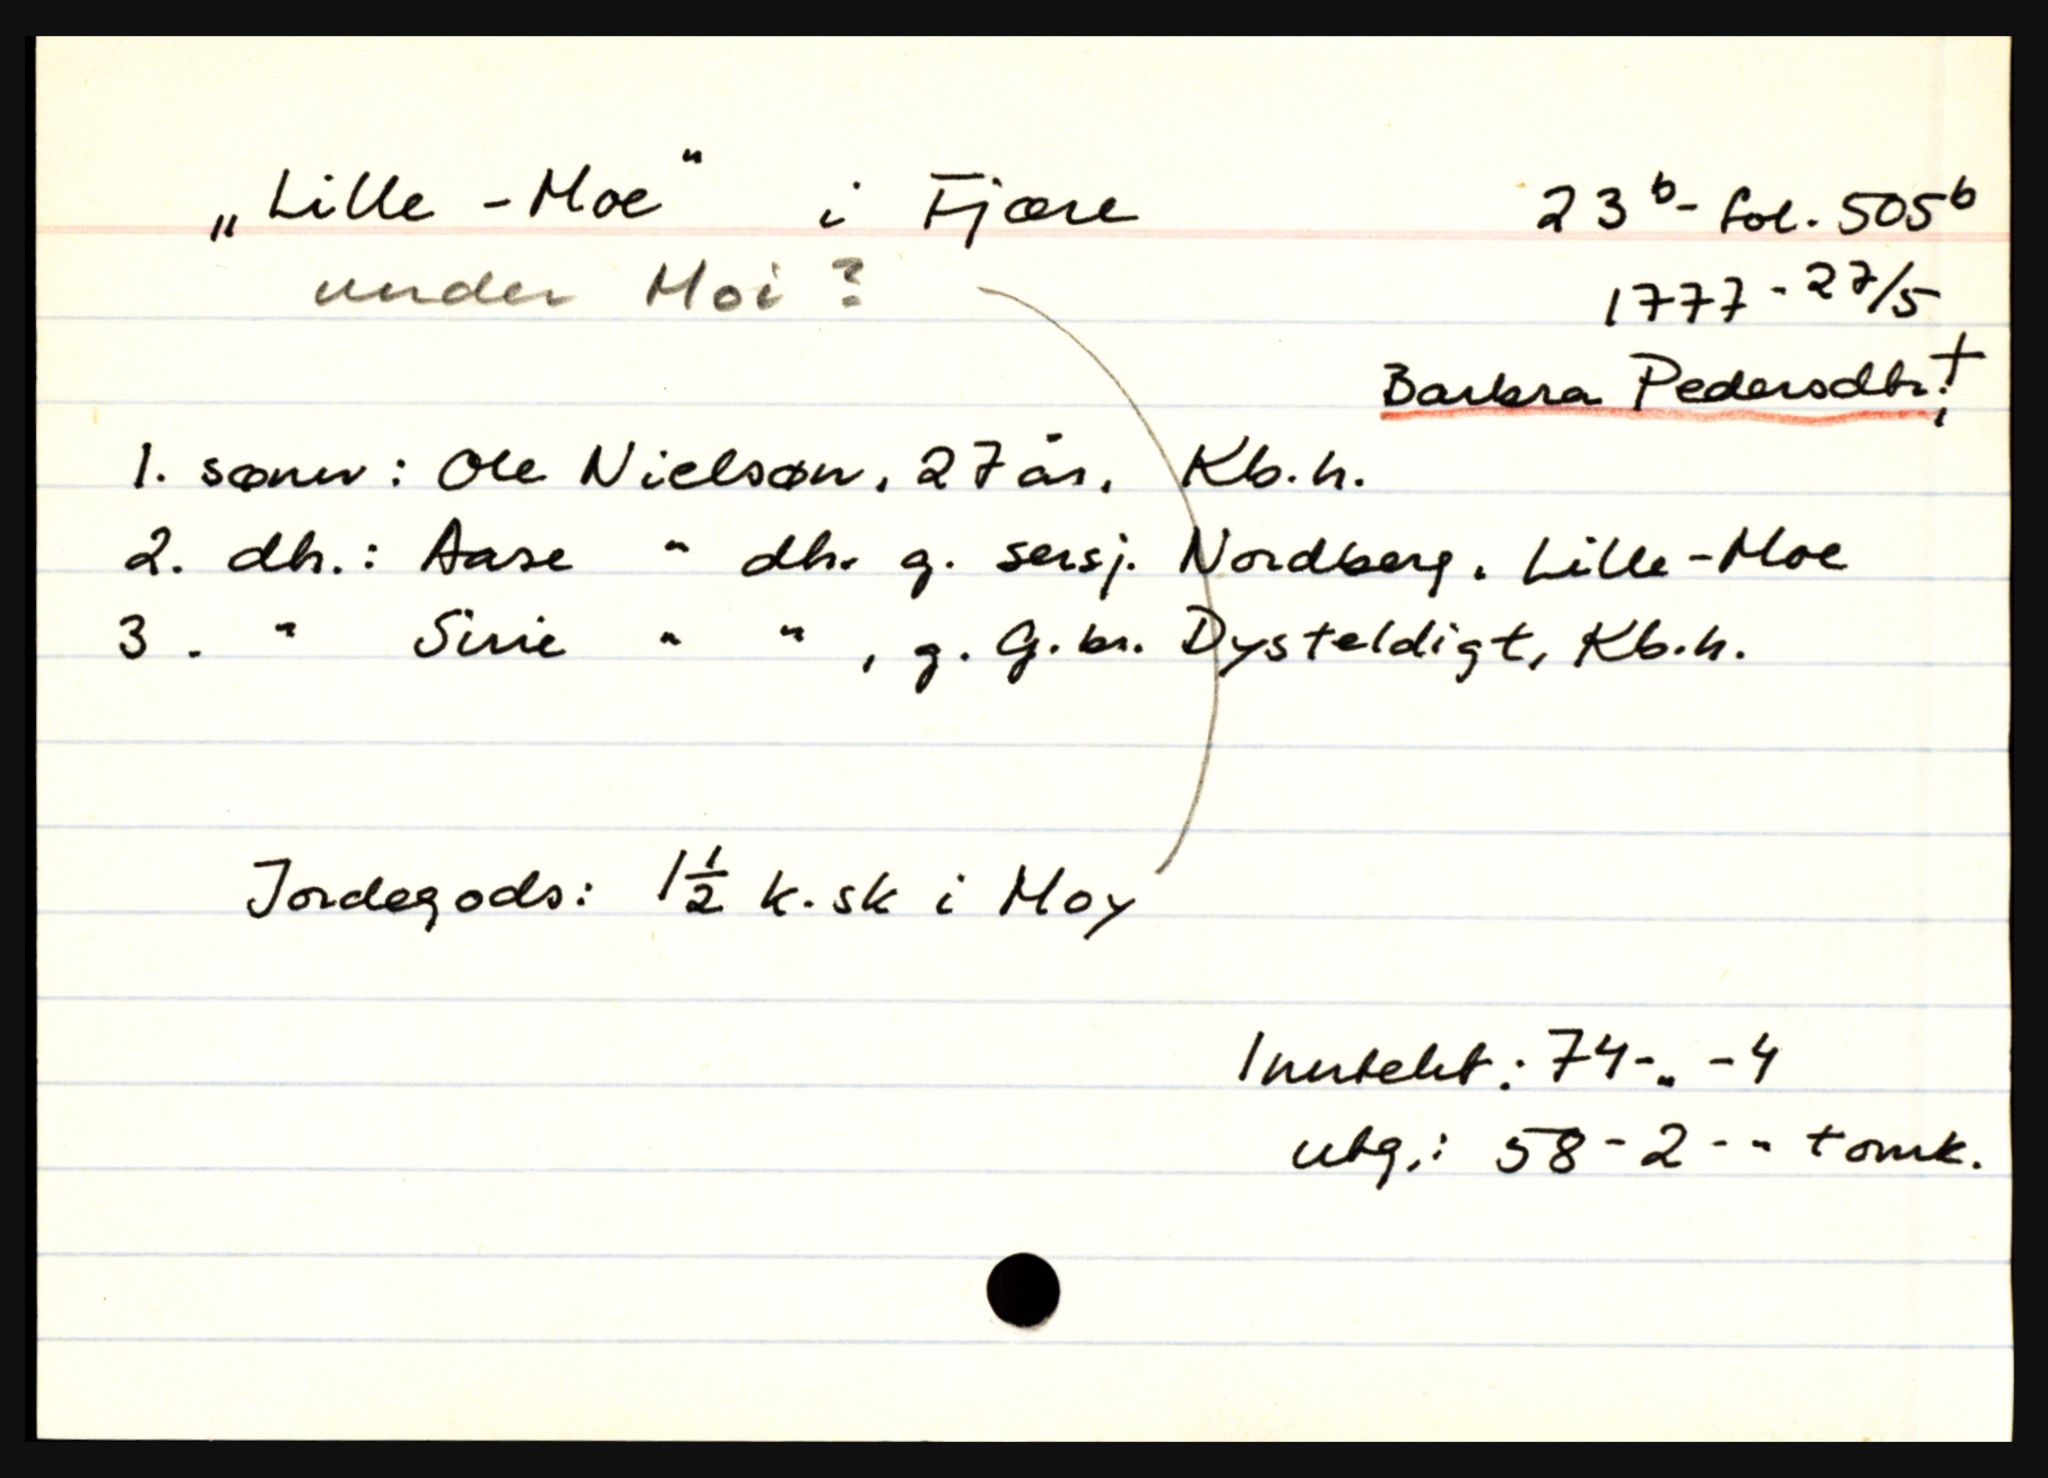 „Lille - Moe" i Fjære
23ᵇ - fol. 505ᵇ
under Moi?
1777 - 27/5
Barbra Pedersdtr.; †
1. sønn: Ole Nielsøn, 27 år, Kb.h.
2. dtr.: Aase " dtr. g. sersj. Nordberg. Lille - Moe
3. " Sirie " ", g. G.br. Dysteldigt, Kb.h.
Jordegods: 1½ k.sk i Moy
Inntekt.: 74 - „ - 4
utg.: 58 - 2 - " + omk.